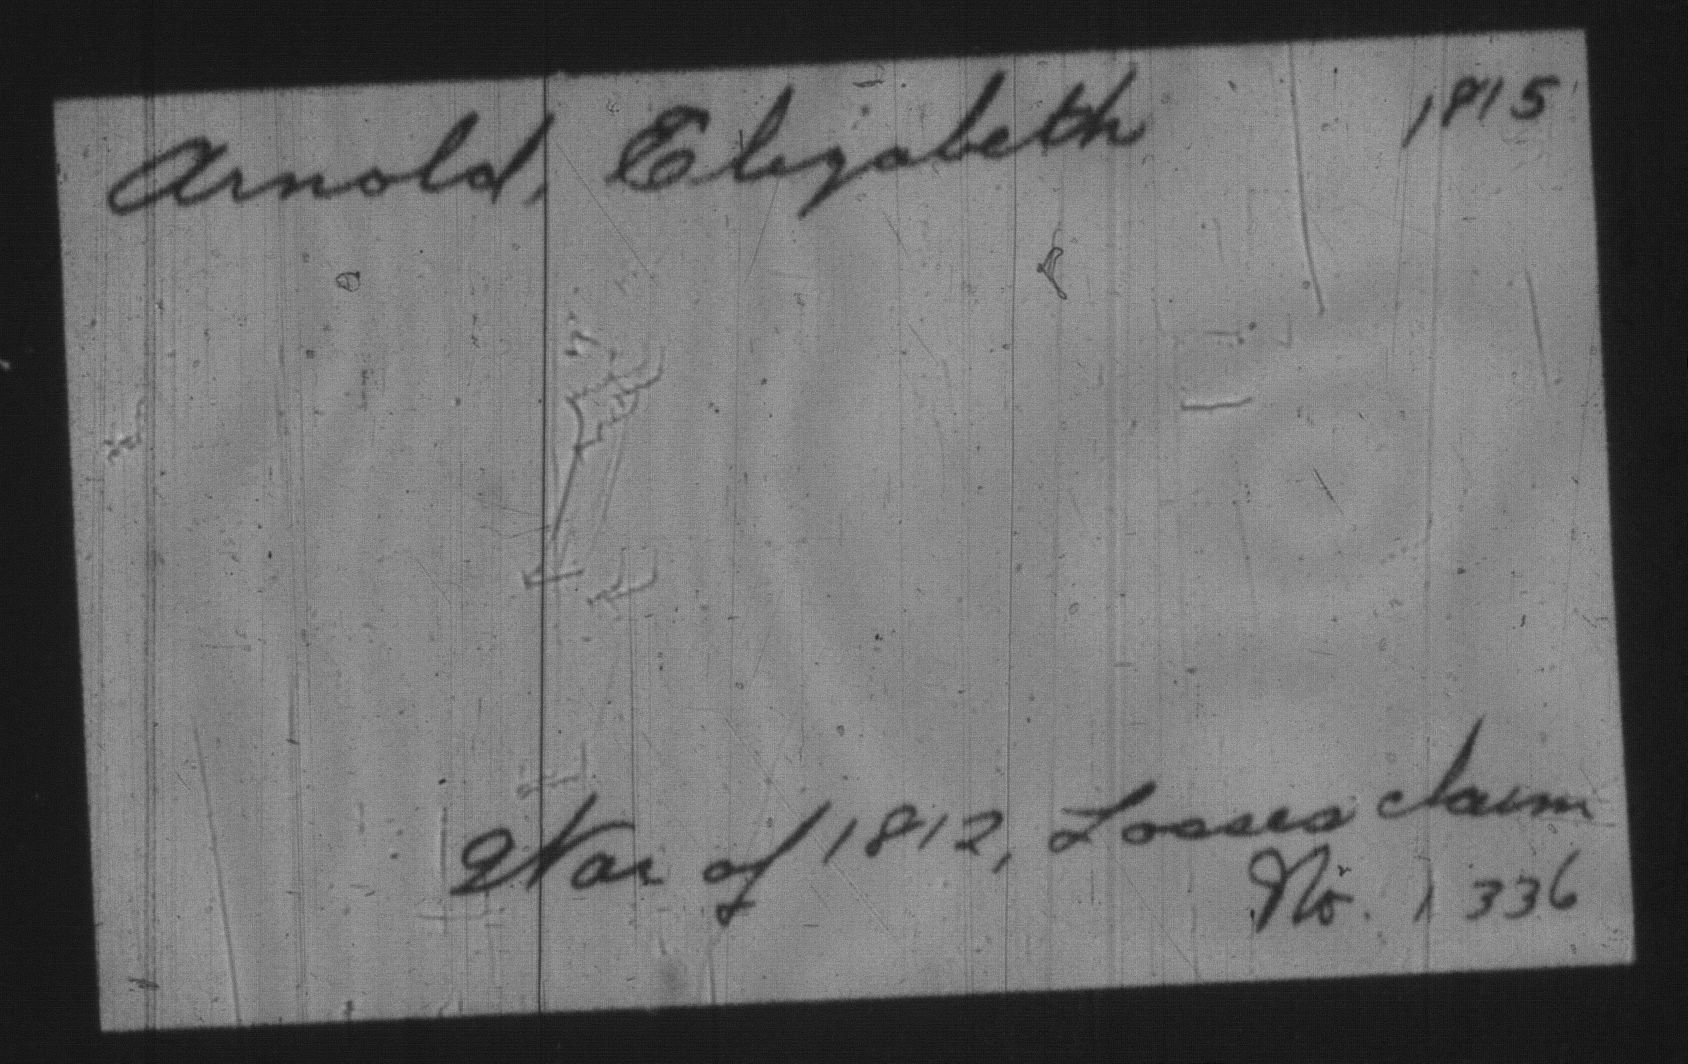 Arnold, Elizabeth 1815
War of 1812, Losses claim
No. 1336